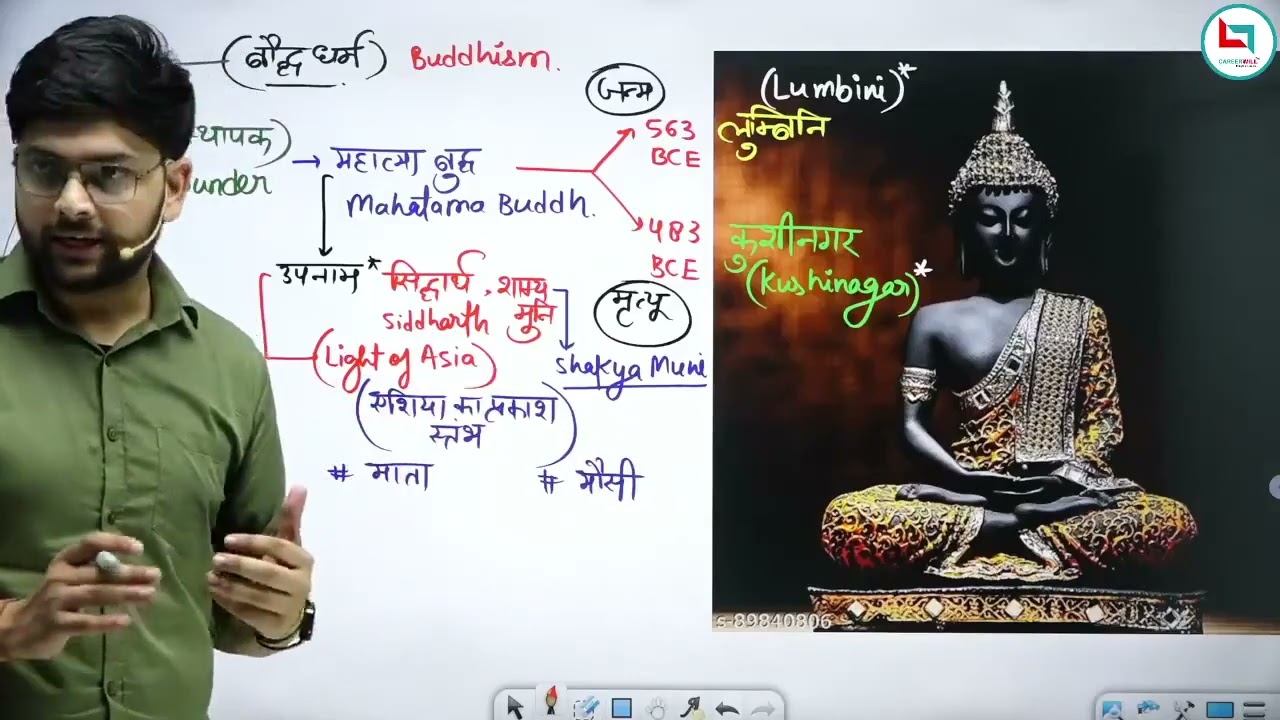 (बौद्ध धर्म) Buddhism.
थापक)
under
→ महात्मा बुद्ध
Mahatama Buddh.
जन्म
563
BCE
483
BCE
मृत्यू
उपनाम* सिद्धार्थ, शाक्य
मुनि
Siddharth
Shakya Muni
(Light of Asia)
(एशिया का प्रकाश
स्तंभ)
# माता
# मौसी
(Lumbini)*
लुम्बिनि
कुशीनगर
(Kushinagar)*
s-89840806
CAREERWILL